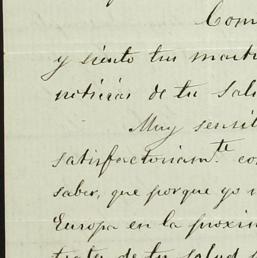 Com
y siento tus
noticias de tu Sal
Muy sensi
satisfactoriam.te co
saber, que porque yo
Europa en la proxim
trata de tu salud